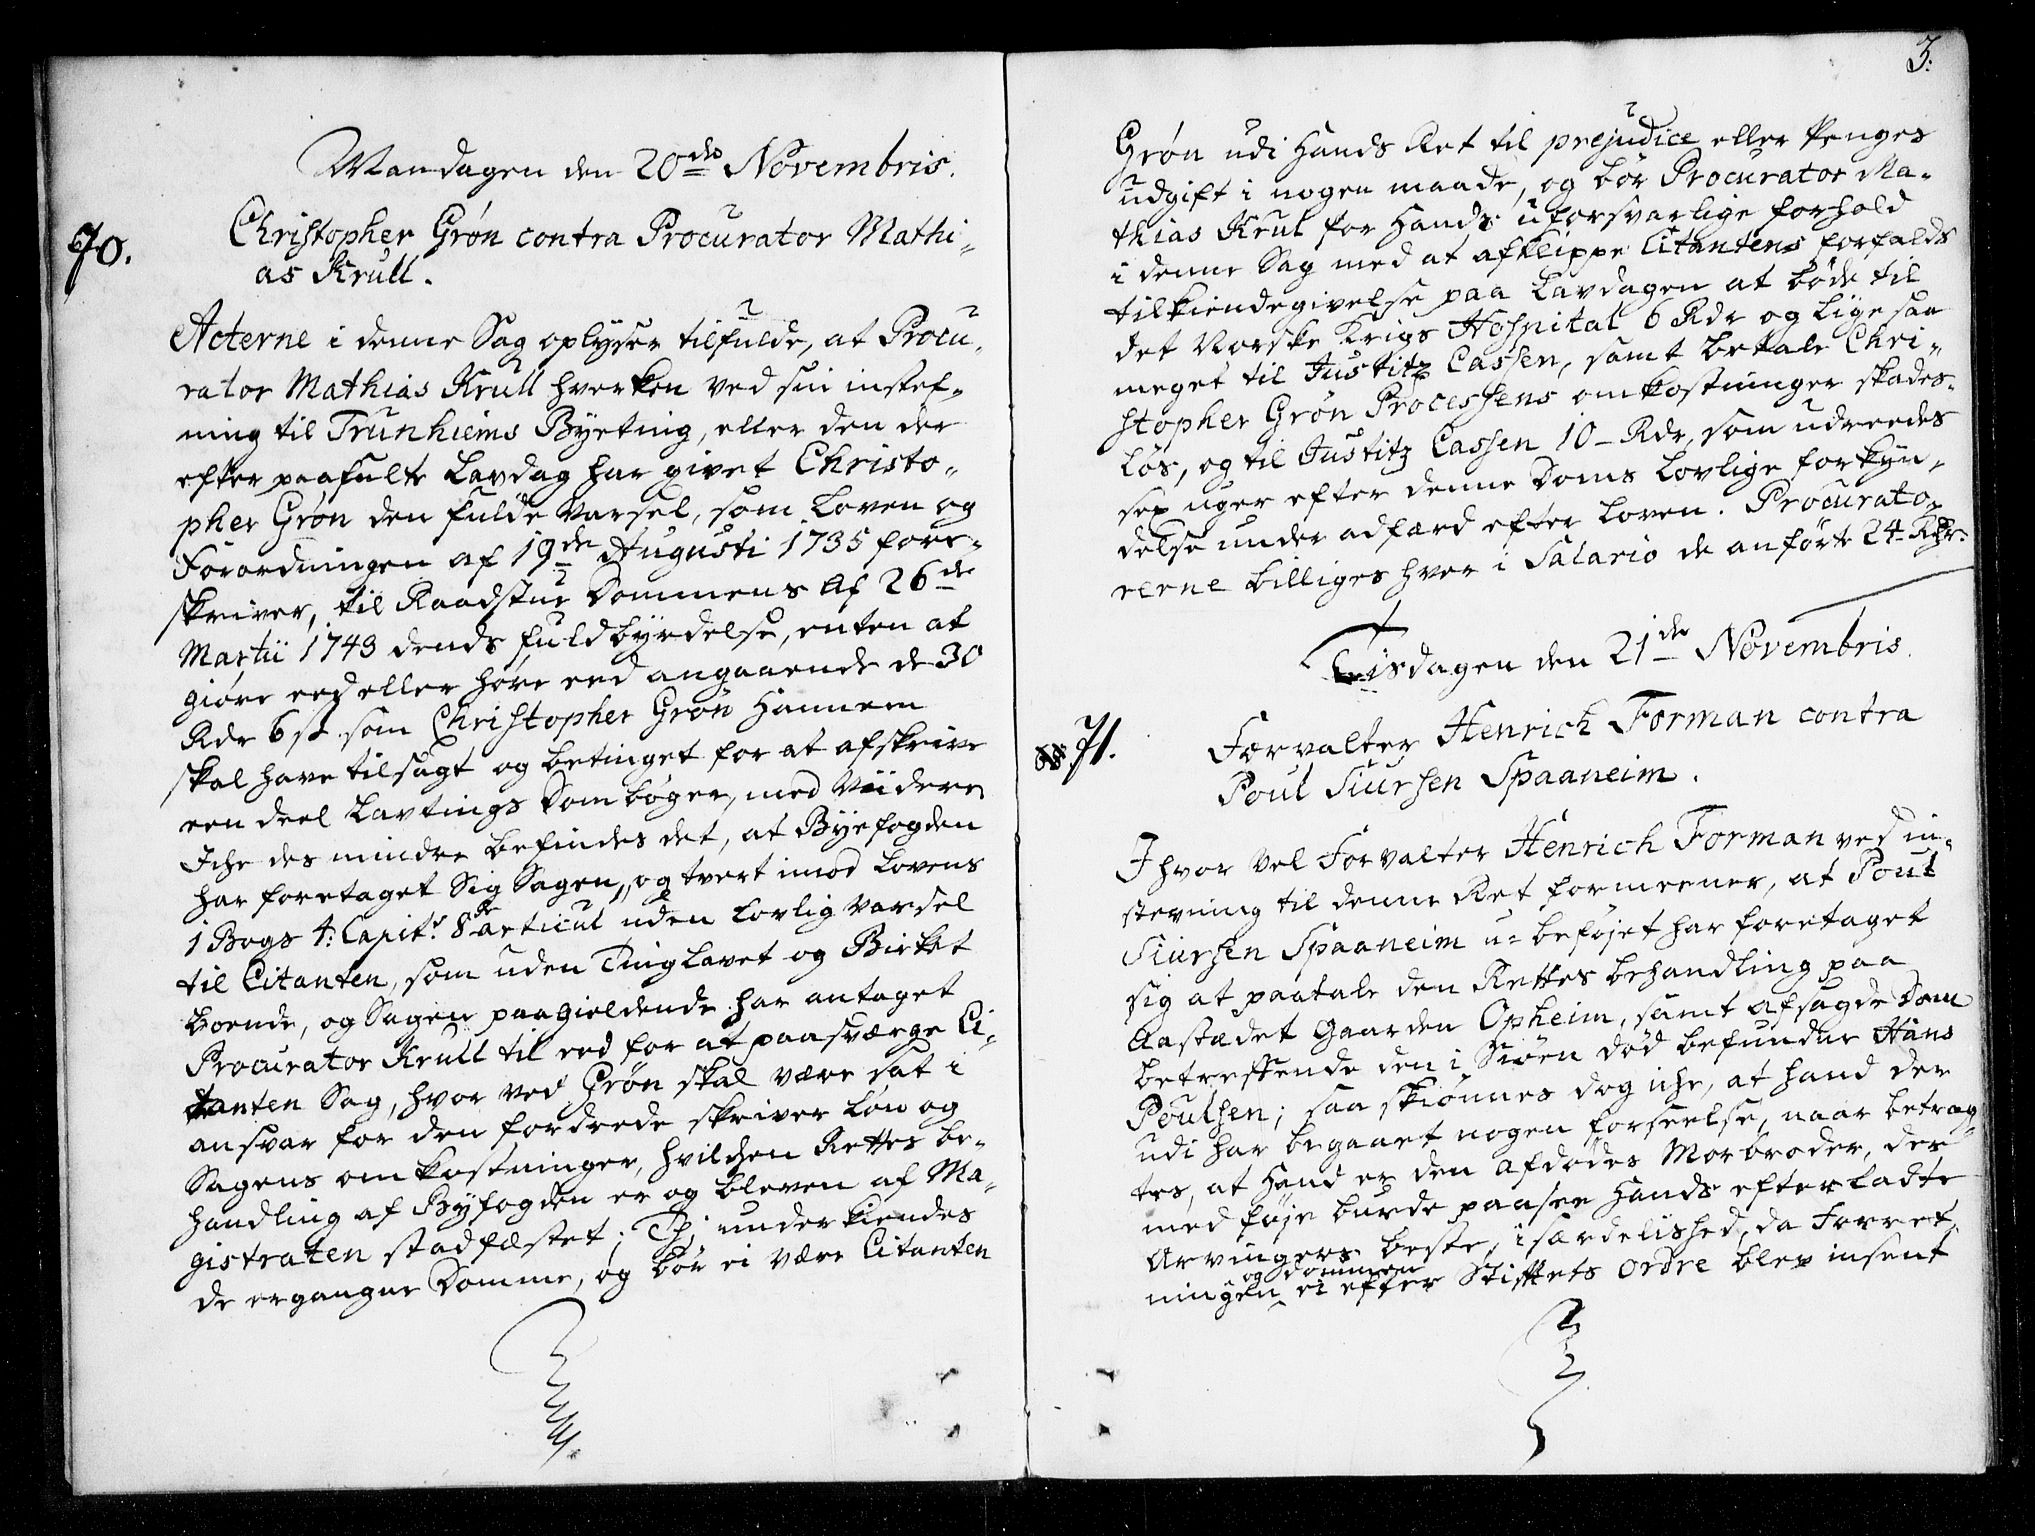 Mandagen den 20de Novembris.
70.
Christopher Grøn contra Procurator Mathi-
as Krull.
Acterne i denne Sag oplyser tilfulde, at Procu-
rator Mathias Krull hverken ved sin instef-
ning til Trunhiems Byeting, eller den der
efter paafulte Lavdag har givet Christo-
pher Grøn den fulde Varsel, som Loven og
Forordningen af 19de Augusti 1735 fore-
skriver, til Raadstue Dommens af 26de
Martii 1743 dends fuldbyrdelse, enten at
giøre eed eller høre eed angaaende de 30
Rdr 6 s. som Christopher Grøn Hannem
skal have tilsagt og betinget for at afskrive
een deel Lavtings Dombøger, med Viidere
Iche des mindre befindes det, at Byefogden
har foretaget Sig Sagen, og tvert imod Lovens
1 Bogs 4: Capit: 8de articul uden lovlig Varsel
til Citanten, som uden Tinglavet og Birket
boende, og Sagen paagieldende har antaget
Procurator Krull til eed for at paasværge Ci-
tanten Sag, hvor ved Grøn skal være sat i
ansvar for den fordrede skriver løn og
Sagens omkostninger, hvilchen Rettes be-
handling af Byfogden er og bleven af Ma-
gistraten stadfæstet; Thj underkiendes
de ergangne Domme, og bør ei være Citanten
3:
Grøn udi Hands Ret til prejudice eller Penges
udgift i nogen maade, og bør Procurator Ma-
thias Krul for Hands uforsvarlige forhold
i denne Sag med at afklippe Citantens forfalds
tilkiendegivelse paa Lavdagen at bøde til
det Norske Krigs Hospital 6 Rdr og lige saa
meget til Justitz Cassen, samt betale Chri-
stopher Grøn Processens omkostninger skades-
løs, og til Justitz Cassen 10 Rdr, som udreedes
sex uger efter denne Doms lovlige forkyn-
delse under adfærd efter Loven. Procurato-
rerne billiges hver i Salario de anførte 24 Rdr.
Tisdagen den 21de Novembris.
71.
Forvalter Henrich Forman contra
Poul Siursen Spaaneim.
I hvor vel Forvalter Henrich Forman ved in-
stevning til denne Ret formeener, at Poul
Siursen Spaaneim u-beføjet har foretaget
sig at paatale den Rettes behandling paa
Aastædet Gaarden Opheim, samt afsagde Dom
betreffende den i Siøen død befundne Hans
Poulsen; saa skiønnes dog iche, at hand der
udi har begaaet nogen forseelse, naar betrag-
tes, at Hand er den afdødes Morbroder, der
med føje burde paasee Hands efterladte
Arvingers beste, i særdelished, da Forret-
og dommen
ningen ei efter Stiftets Ordre blev insent